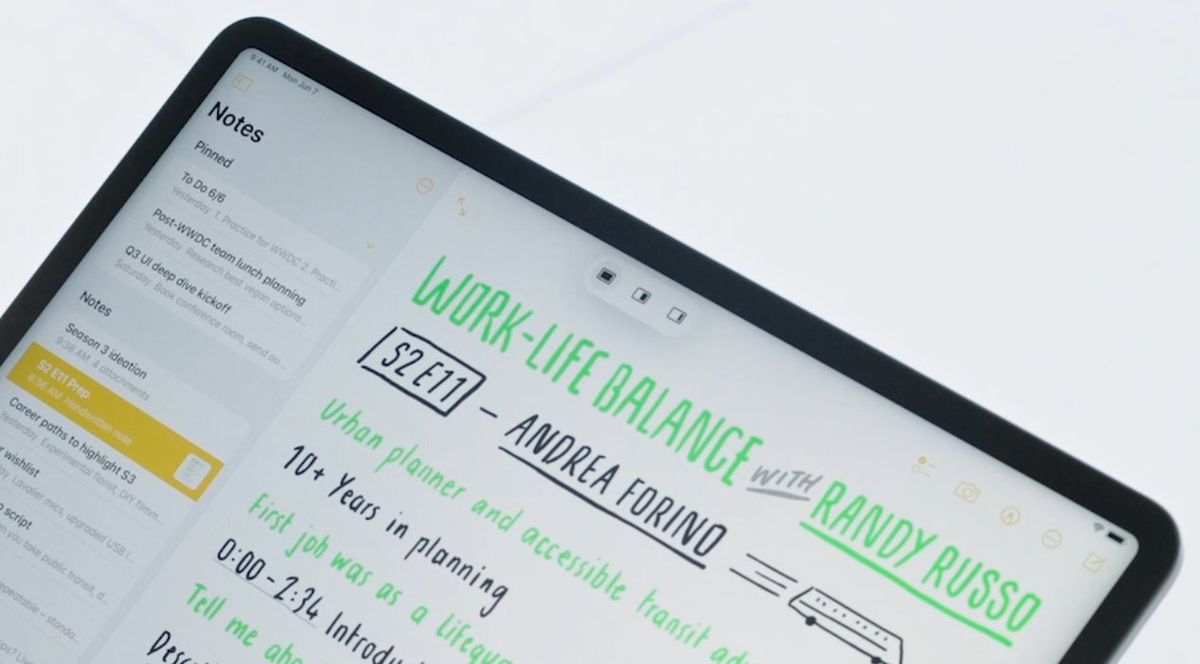 9:41 AM Mon Jun 7
Notes
Pinned
To Do 6/6
Yesterday 1. Practice for WWDC 2. Practi...
Post-WWDC team lunch planning
Yesterday Research best vegan options...
Q3 UI deep dive kickoff
Saturday Book conference room, send ou...
Notes
Season 3 ideation
9:38 AM 4 attachments
S2 E11 Prep
8:56 AM Handwritten note
Career paths to highlight S3
Yesterday Experimental florist, DIY filmm...
wishlist
Lavalier mics, upgraded USB
script
you take public transit, d...
WORK-LIFE BALANCE WITH RANDY RUSSO
S2 E11 – ANDREA FORINO
Urban planner and accessible transit adv
10+ Years in planning
First job was as a lifegua
0:00 - 2:34 Introdu
Tell me abo
Desc